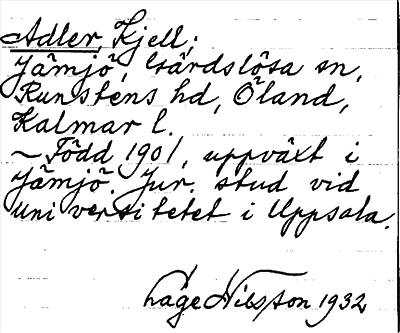 Adler, Kjell;
Jämjö, Gärdslösa sn,
Runstens hd, Öland,
Kalmar l.
~ Född 1901, uppväxt i
Jämjö. Jur. stud vid
universitetet i Uppsala.
Lage Nilsson 1932